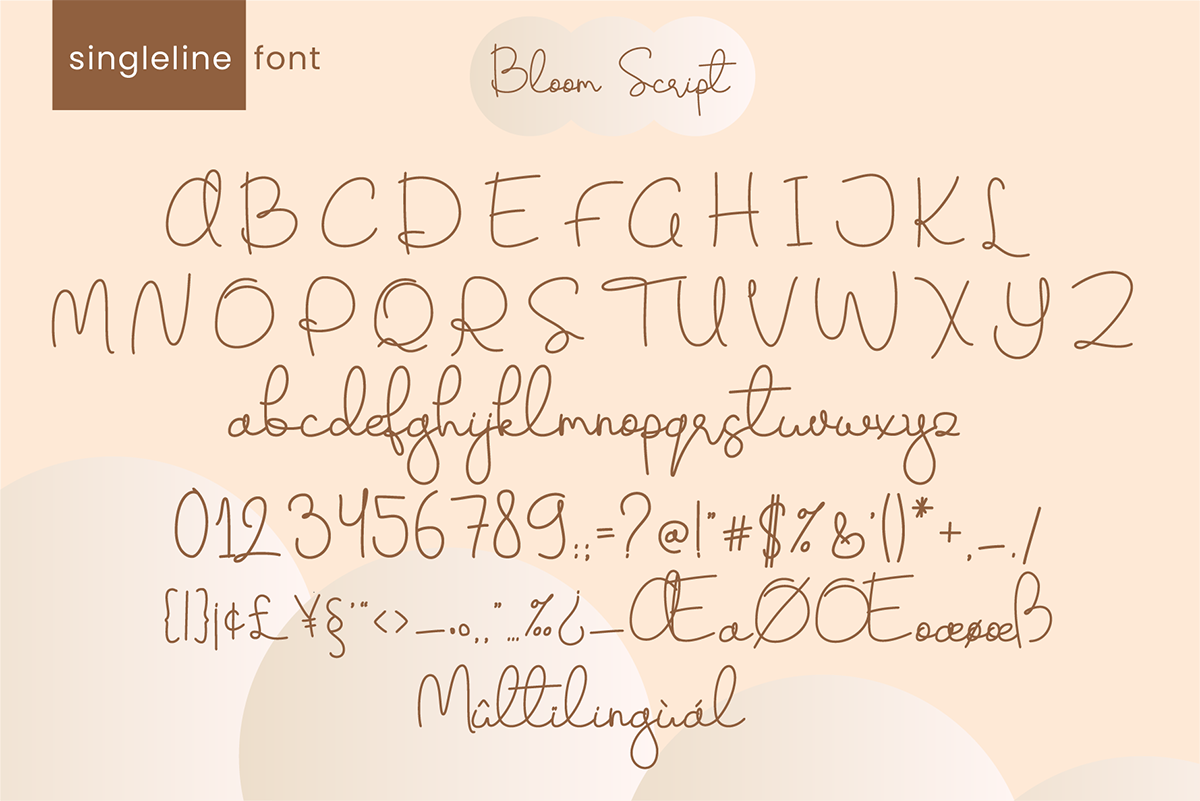 singleline font
Bloom Script
ABCDEFGHIJKL
MNOPQRSTUVWXYZ
abcdefghijklmnopqrstuvwxyz
0123456789:;=?@!"#$%&'()*+,_./
{|}¡¢£¥§'"‘“<>_•o,„”…‰¿—ŒaØŒoœøœß
Mûlttïlingùál